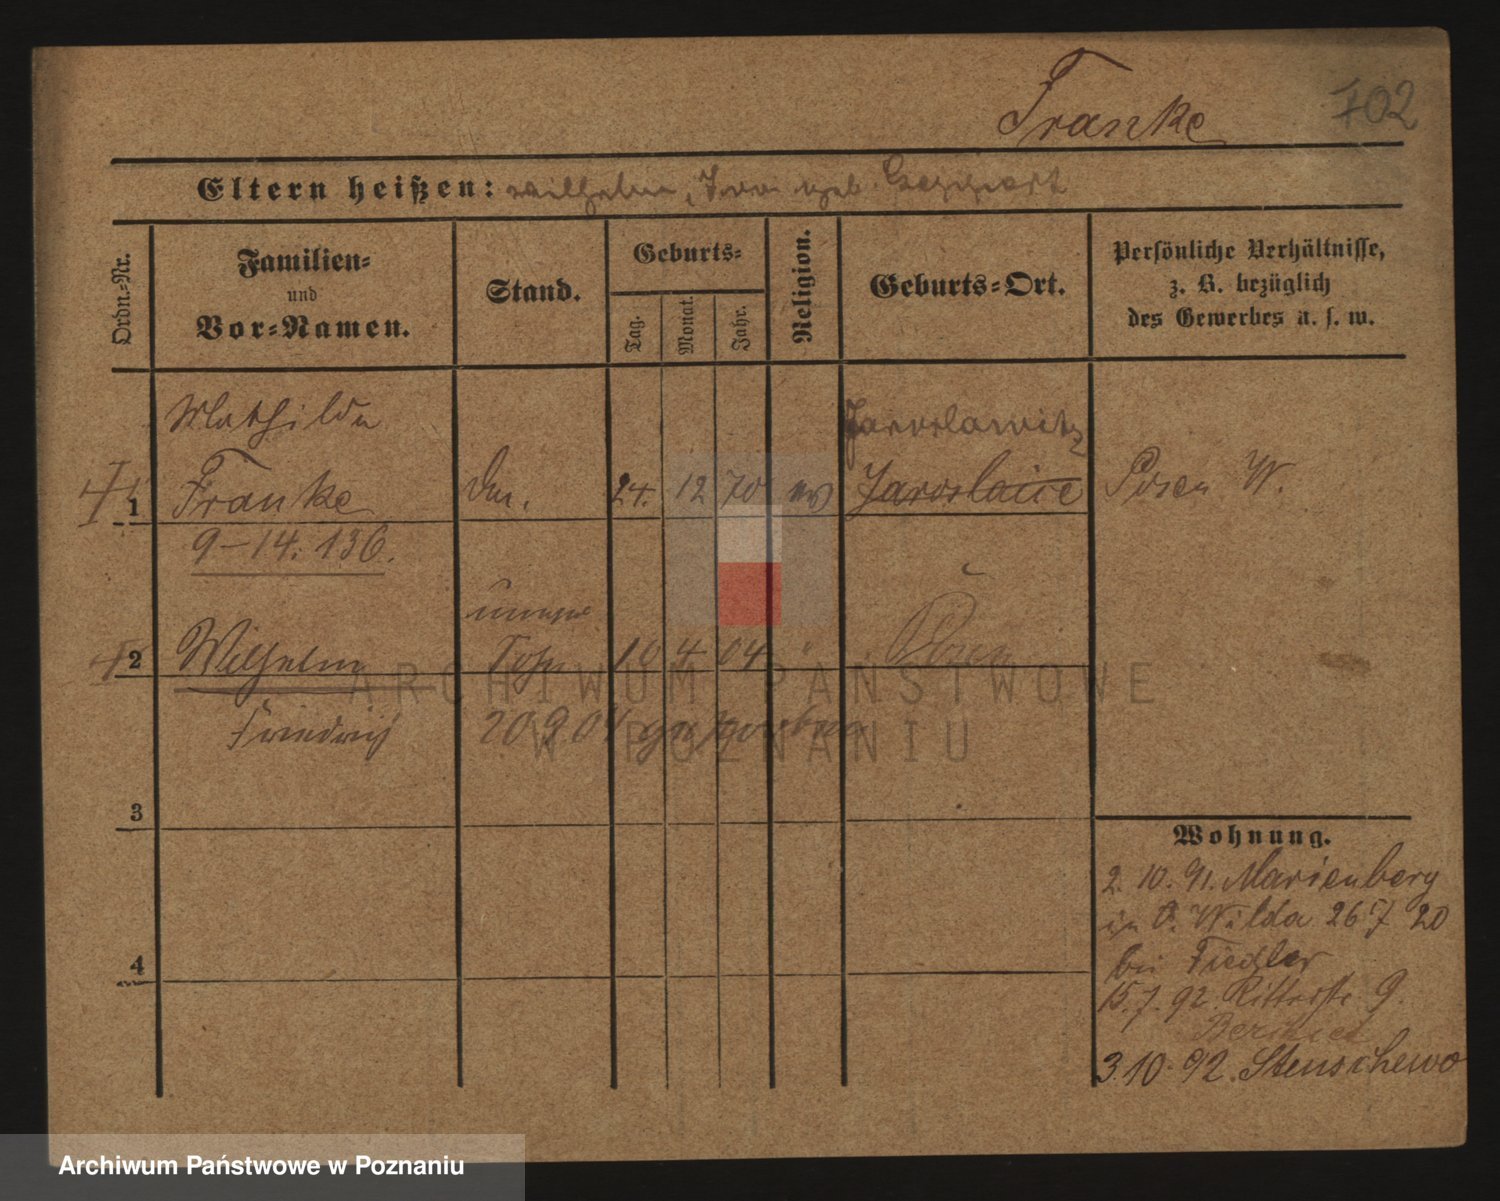 Franke 702
Eltern heißen: Wilhelm, geb.
Ordn.-Nr.
Familien-
und
Vor-Namen.
Stand.
Geburts-
Tag.
Monat.
Jahr.
Religion.
Geburts-Ort.
Persönliche Verhältnisse,
z. B. bezüglich
des Gewerbes u. s. w.
Mathilde Jaroslawitz
1 Franke 24. 12 70 ev Jaroslawice Posen W.
9-14. 136.
2 Wilhelm 10 4 04 Posen
Friedrich 20.9.04
3
4
Wohnung.
2. 10. 91. Marienberg
in O. Wilda 267 20
bei Fiedler
15. 7. 92. Ritterstr. 9.
3. 10. 92. Stenschewo
ARCHIWUM PAŃSTWOWE
W POZNANIU
Archiwum Państwowe w Poznaniu